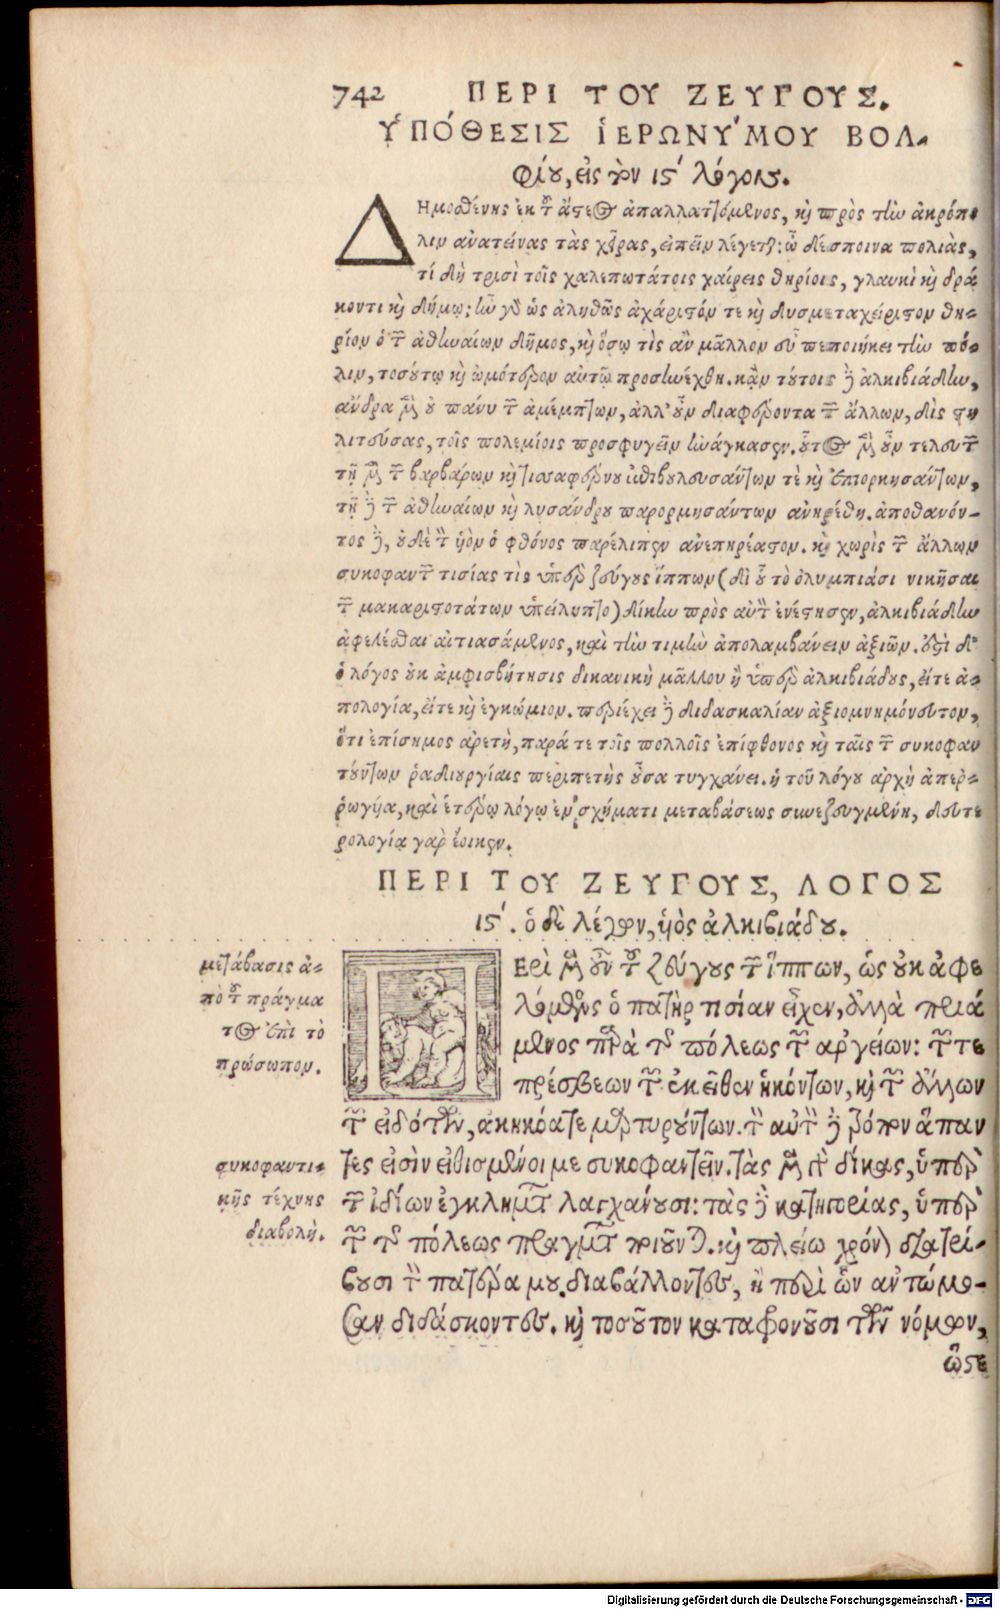 742 ΠΕΡΙ ΤΟΥ ΖΕΥΓΟΥΣ.
ΥΠΌΘΕΣΙΣ ἹΕΡΩΝΎΜΟΥ ΒΟΛ-
φίου, εἰς τὸν ιϛ΄ λόγον.
Δημοσθένης ἐκ τοῦ ἄστεος ἀπαλλαττόμενος, καὶ πρὸς τὴν ἀκρόπο
λιν ἀνατείνας τὰς χεῖρας, εἰπεῖν λέγεται: ὦ δέσποινα πολιὰς,
τί δὴ τρισὶ τοῖς χαλεπωτάτοις χαίρεις θηρίοις, γλαυκὶ καὶ δρά
κοντι καὶ δήμῳ: ἦν γὰρ ὡς ἀληθῶς ἀχάριστόν τε καὶ δυσμεταχείριστον θη-
ρίον ὁ τῶν ἀθηναίων δῆμος, καὶ ὅσῳ τὶς ἂν μᾶλλον εὖ πεποιήκει τὴν πό-
λιν, τοσούτῳ καὶ ὠμότερον αὐτῷ προσηνέχθη. κἀν τούτοις δὲ ἀλκιβιάδην,
ἄνδρα μὲν οὐ πάνυ τῶν ἀμέμπτων, ἀλλ' οὖν διαφέροντα τῶν ἄλλων, δὶς στη
λιτεύσας, τοῖς πολεμίοις προσφυγεῖν ἠνάγκασεν. οὗτος μὲν οὖν τελευτᾷ
τῇ μὲν τῶν βαρβάρων καὶ τισαφέρνου ἐπιβουλευσάντων τὲ καὶ ἐπιορκησάντων,
τῇ δὲ τῶν ἀθηναίων καὶ λυσάνδρου παρορμησάντων ἀνῃρέθη. ἀποθανόν-
τος δὲ, οὐδὲ τὸν ὑὸν ὁ φθόνος παρέλιπεν ἀνεπηρέαστον. καὶ χωρὶς τῶν ἄλλων
συκοφαντῶν τισίας τὶς ὑπὲρ ζεύγους ἵππων (δι' οὗ τὸ ὀλυμπιάσι νικῆσαι
τῶν μακαριστοτάτων ὑπείληπτο) δίκην πρὸς αὐτὸν ἐνέστησεν, ἀλκιβιάδην
ἀφελέσθαι αἰτιασάμενος, καὶ τὴν τιμὴν ἀπολαμβάνειν ἀξιῶν. ἔστι δ'
ὁ λόγος οὐκ ἀμφισβήτησις δικανικὴ μᾶλλον ἢ ὑπὲρ ἀλκιβιάδους, εἴτε ἀ-
πολογία, εἴτε καὶ ἐγκώμιον. περιέχει δὲ διδασκαλίαν ἀξιομνημόνευτον,
ὅτι ἐπίσημος ἀρετὴ, παρά τε τοῖς πολλοῖς ἐπίφθονος καὶ ταῖς τῶν συκοφαν
τούντων ῥαδιουργίαις περιπετὴς οὖσα τυγχάνει. ἡ τοῦ λόγου ἀρχὴ ἀπερ-
ρωγυῖα, καὶ ἑτέρῳ λόγῳ ἐν σχήματι μεταβάσεως συνεζευγμένη, δευτε
ρολογίᾳ γὰρ ἔοικεν.
ΠΕΡΙ ΤΟΥ ΖΕΥΓΟΥΣ, ΛΟΓΟΣ
ιϛ΄. ὁ δὲ λέγων, ὑὸς ἀλκιβιάδου.
μετάβασις ἀ-
πὸ τοῦ πράγμα
τος ἐπὶ τὸ
πρόσωπον.
Περὶ μὲν οὖν τοῦ ζεύγους τῶν ἵππων, ὡς οὐκ ἀφε
λόμενος ὁ πατὴρ τισίαν εἶχεν, ἀλλὰ πριά
μενος παρὰ τῆς πόλεως τῶν ἀργείων: τῶν τε
πρέσβεων τῶν ἐκεῖθεν ἡκόντων, καὶ τῶν ἄλλων
τῶν εἰδότων, ἀκηκόατε μαρτυρούντων. τὸν αὐτὸν δὲ τρόπον ἅπαν
συκοφαντι-
κῆς τέχνης
διαβολὴ.
τες εἰσὶν εἰθισμένοι με συκοφαντεῖν. τὰς μὲν γὰρ δίκας, ὑπὲρ
τῶν ἰδίων ἐγκλημάτων λαγχάνουσι: τὰς δὲ κατηγορίας, ὑπὲρ
τῶν τῆς πόλεως πραγμάτων ποιοῦνται. καὶ πλείω χρόνον διατρί-
βουσι τὸν πατέρα μου διαβάλλοντες, ἢ περὶ ὧν ἀντώμο-
σαν διδάσκοντες. καὶ τοσοῦτον καταφρονοῦσι τῶν νόμων,
ὥστε
Digitalisierung gefördert durch die Deutsche Forschungsgemeinschaft - DFG